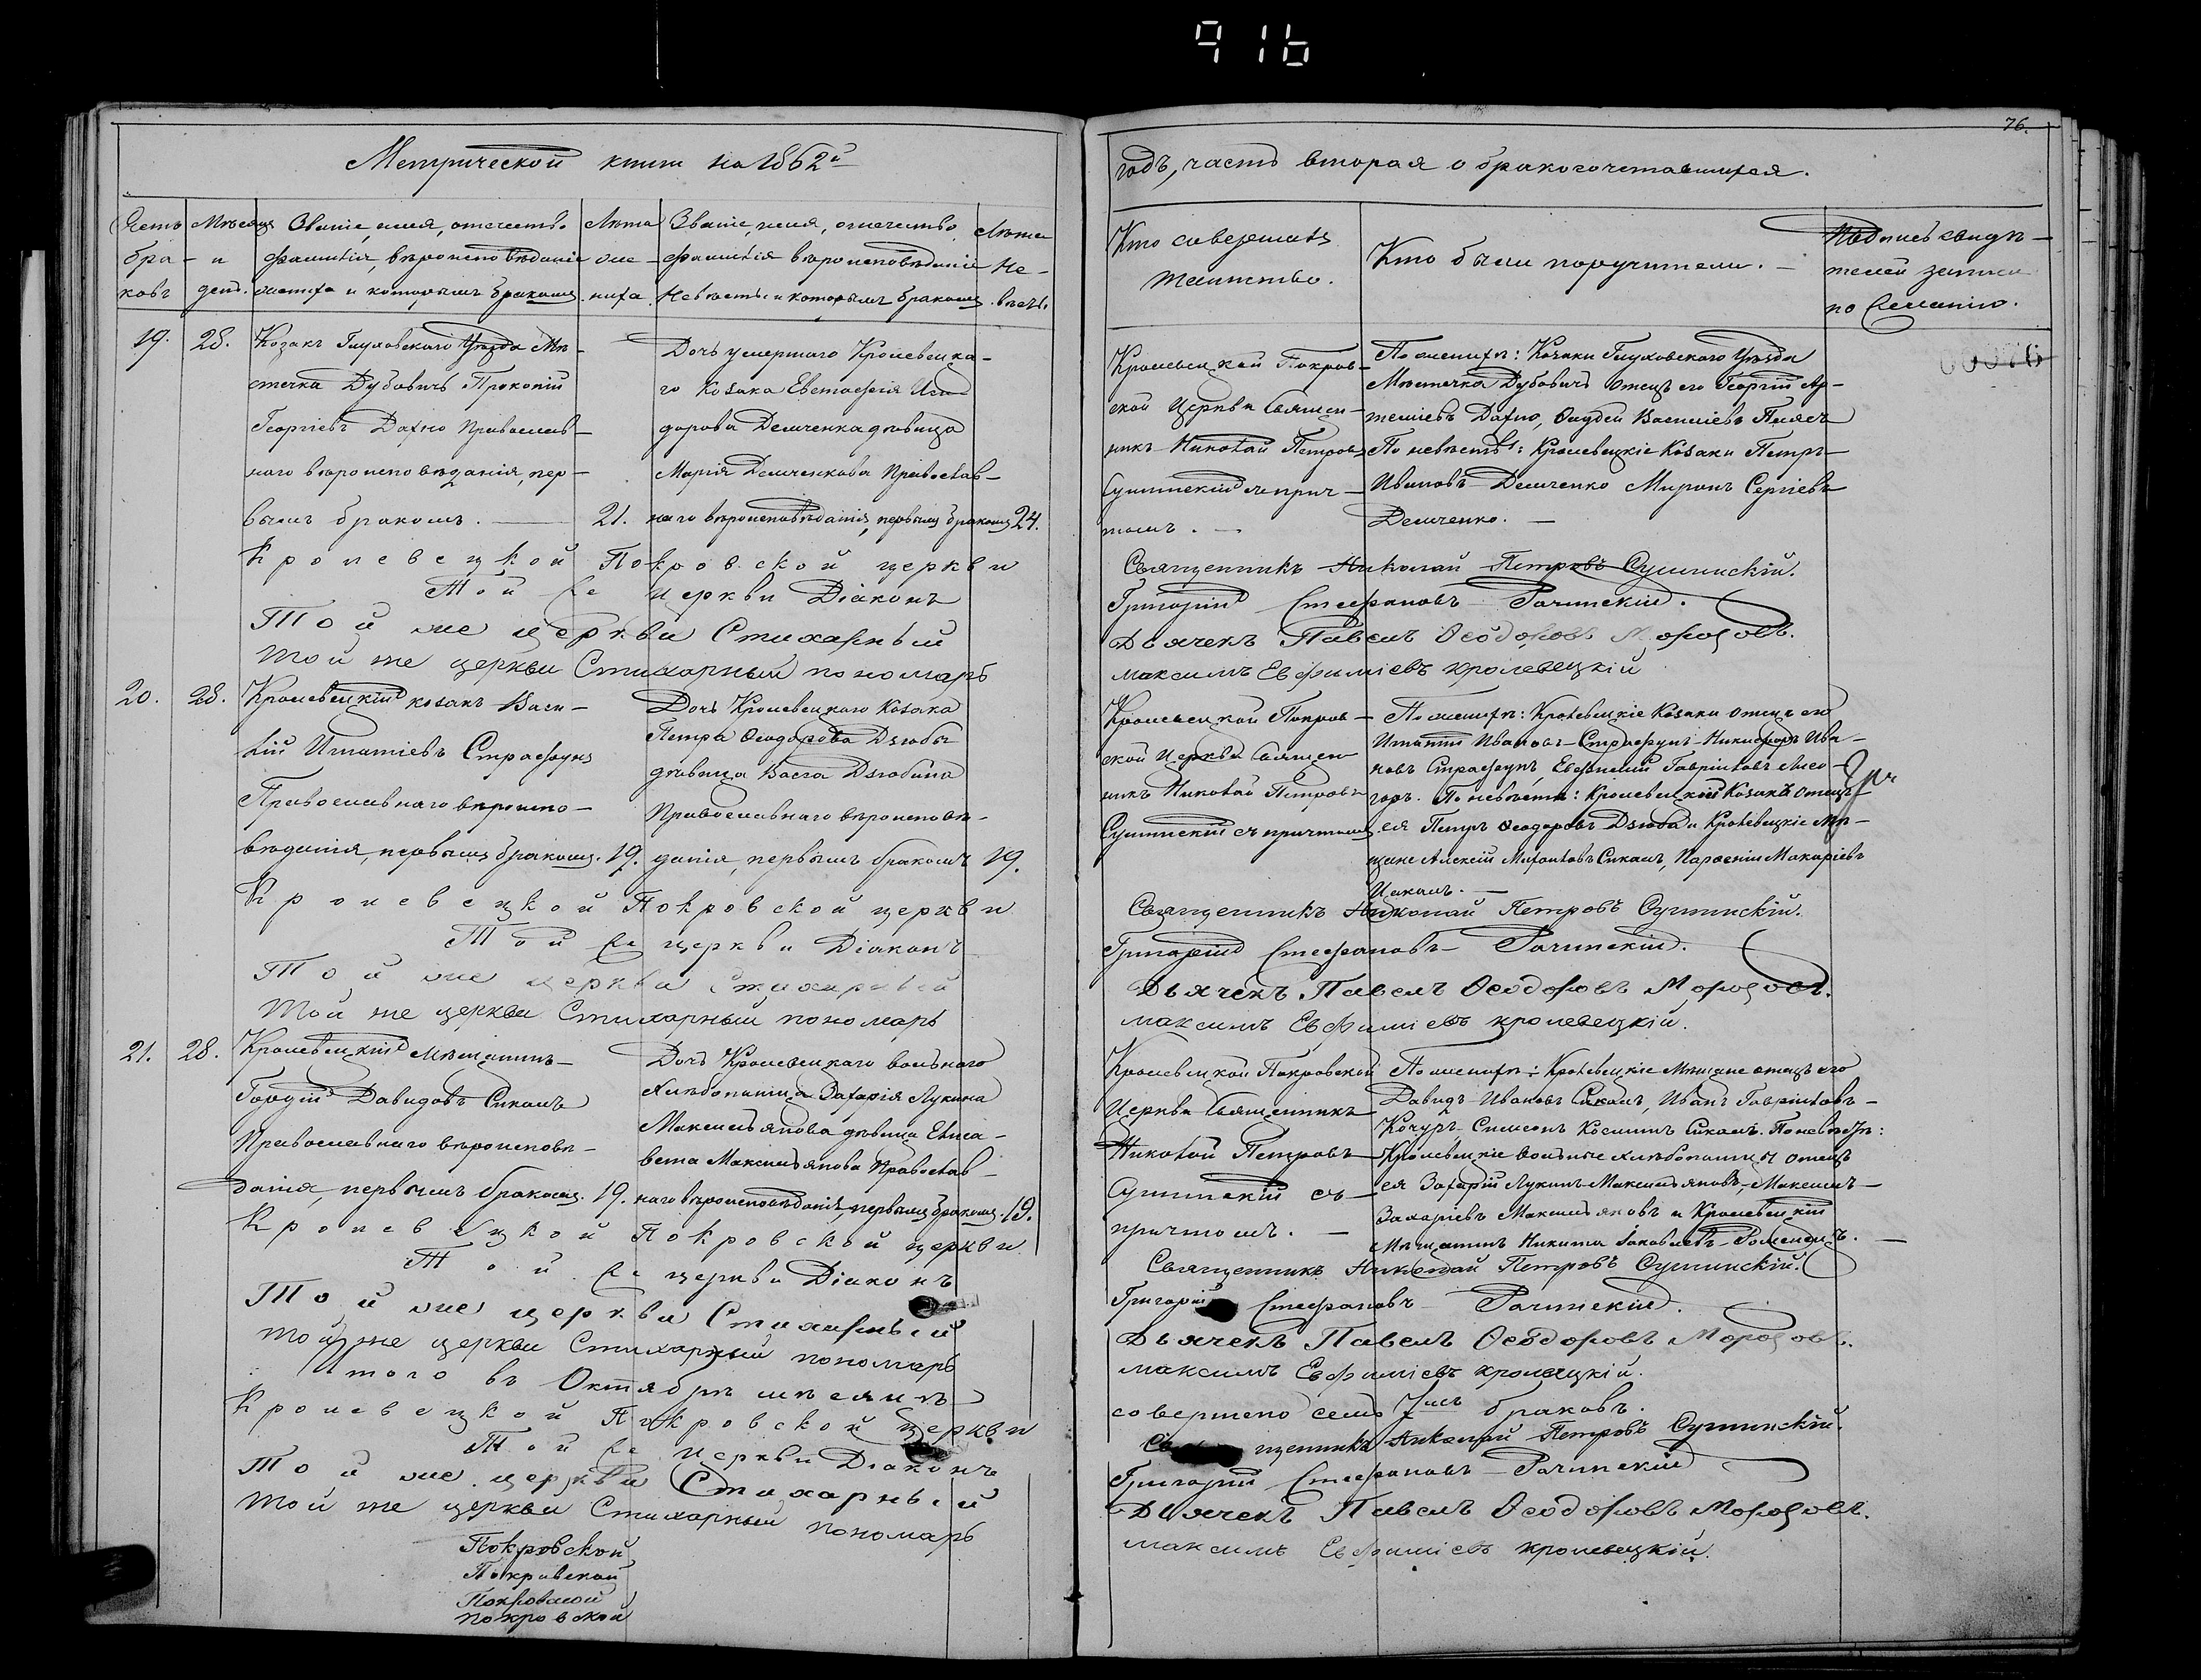 916
76.
Метрической книги на 1862й
годъ, часть вторая о бракосочетавшихся.
Счетъ браковъ
Мѣсяцъ и день.
Званіе, имя, отчество, фамилія, вѣроисповѣданіе жениха и которымъ бракомъ
Лѣта жениха.
Званіе, имя, отчество, фамилія вѣроисповѣданіе невѣсты и которымъ бракомъ
Лѣта невѣсты.
Кто совершалъ таинство.
Кто были поручители.
Подпись свидѣтелей записи по желанію.
00076
19.
28.
Козакъ Глуховского Уѣзда Мѣ-
стечка Дубовичъ Прокопій
Георгіевъ Дахно Православ-
наго вѣроисповѣданія, пер-
вымъ бракомъ.
21.
Дочь умершаго Кролевецка-
го Козака Евстафія Иси-
дорова Демченка дѣвица
Марія Демченкова Православ-
наго вѣроисповѣданія, первымъ бракомъ
24.
Кролевецкой Покров-
ской Церкви Священ-
никъ Николай Петровъ
Сушинскій съ прич-
томъ.
По женихѣ: Козаки Глуховскаго Уѣзда
Мѣстечка Дубовичъ отецъ его Георгій Ар-
теміевъ Дахно, Василіевъ
По невѣстѣ: Кролевецкіе Козаки Петръ
Ивановъ Демченко Миронъ Сергіевъ
Демченко.
Кролевецкой Покровской церкви Священникъ Николай Петровъ Сушинскій.
Той же церкви Діаконъ Григорій Стефановъ Рачинскій.
Той же церкви Стихарный Дьячекъ Павелъ Ѳеодоровъ Морозовъ.
Той же церкви Стихарный пономарь максимъ Евфиміевъ кролевецкій
20.
28.
Кролевецкій козакъ Васи-
лій Игнатіевъ Страфунъ
Православнаго вѣроиспо-
вѣданія, первымъ бракомъ.
19.
Дочь Кролевецкаго Козака
Петра Ѳеодорова Дзюбы
дѣвица Васса Дзюбина
Православнаго вѣроисповѣ-
данія, первымъ бракомъ
19.
Кролевецкой Покров-
ской Церкви Священ-
никъ Николай Петровъ
Сушинскій съ причтомъ
По женихѣ: Кролевецкіе Козаки отецъ его
Игнатій Ивановъ Страфунъ Никифоръ Ива-
новъ Страфунъ, Евфимій Гавріиловъ Лисо-
горъ. По невѣстѣ: Кролевецкій Козакъ отецъ
ея Петръ Ѳеодоровъ Дзюба и Кролевецкіе Мѣ-
щане Алексій Михаиловъ Сикалъ, Парѳеній Макаріевъ
Кролевецкой Покровской церкви Священникъ Николай Петровъ Сушинскій.
Той же церкви Діаконъ Григорій Стефановъ Рачинскій.
Той же церкви Стихарный Дьячекъ Павелъ Ѳеодоровъ Морозовъ.
Той же церкви Стихарный пономарь максимъ Евфиміевъ кролевецкій.
21.
28.
Кролевецкій Мѣщанинъ
Гордій Давидовъ Сикалъ
Православнаго вѣроисповѣ-
данія, первымъ бракомъ.
19.
Дочь Кролевецкаго вольнаго
хлѣбопашца Захарія Лукина
Максимьянова дѣвица Елиса-
вета Максимьянова Православ-
наго вѣроисповѣданія, первымъ бракомъ.
19.
Кролевецкой Покровской
Церкви Священникъ
Николай Петровъ
Сушинскій съ
причтомъ.
По женихѣ: Кролевецкіе Мѣщане отецъ его
Давидъ Ивановъ Сикалъ, Иванъ Гавріиловъ
Кочуръ Симеонъ Косминъ Сикалъ. По невѣстѣ:
Кролевецкіе вольные хлѣбопашцы отецъ
ея Захарій Лукинъ Максимьяновъ, Максимъ
Захаріевъ Максимьяновъ и Кролевецкій
Мѣщанинъ Никита Іаковлевъ
Кролевецкой Покровской церкви Священникъ Николай Петровъ Сушинскій.
Той же церкви Діаконъ Григорій Стефановъ Рачинскій.
Той же церкви Стихарный Дьячекъ Павелъ Ѳеодоровъ Морозовъ.
Той же церкви Стихарный пономарь максимъ Евфиміевъ кролевецкій.
Итого въ Октябрѣ мѣсяцѣ совершено семь 7мь браковъ.
Кролевецкой Покровской Церкви Священникъ Николай Петровъ Сушинскій.
Той же Церкви Діаконъ Григорій Стефановъ Рачинскій
Той же церкви Стихарный Дьячекъ Павелъ Ѳеодоровъ Морозовъ.
Той же церкви Стихарный пономарь максимъ Евфиміевъ кролевецкій.
Покровской
Покровской
Покровской
покровской